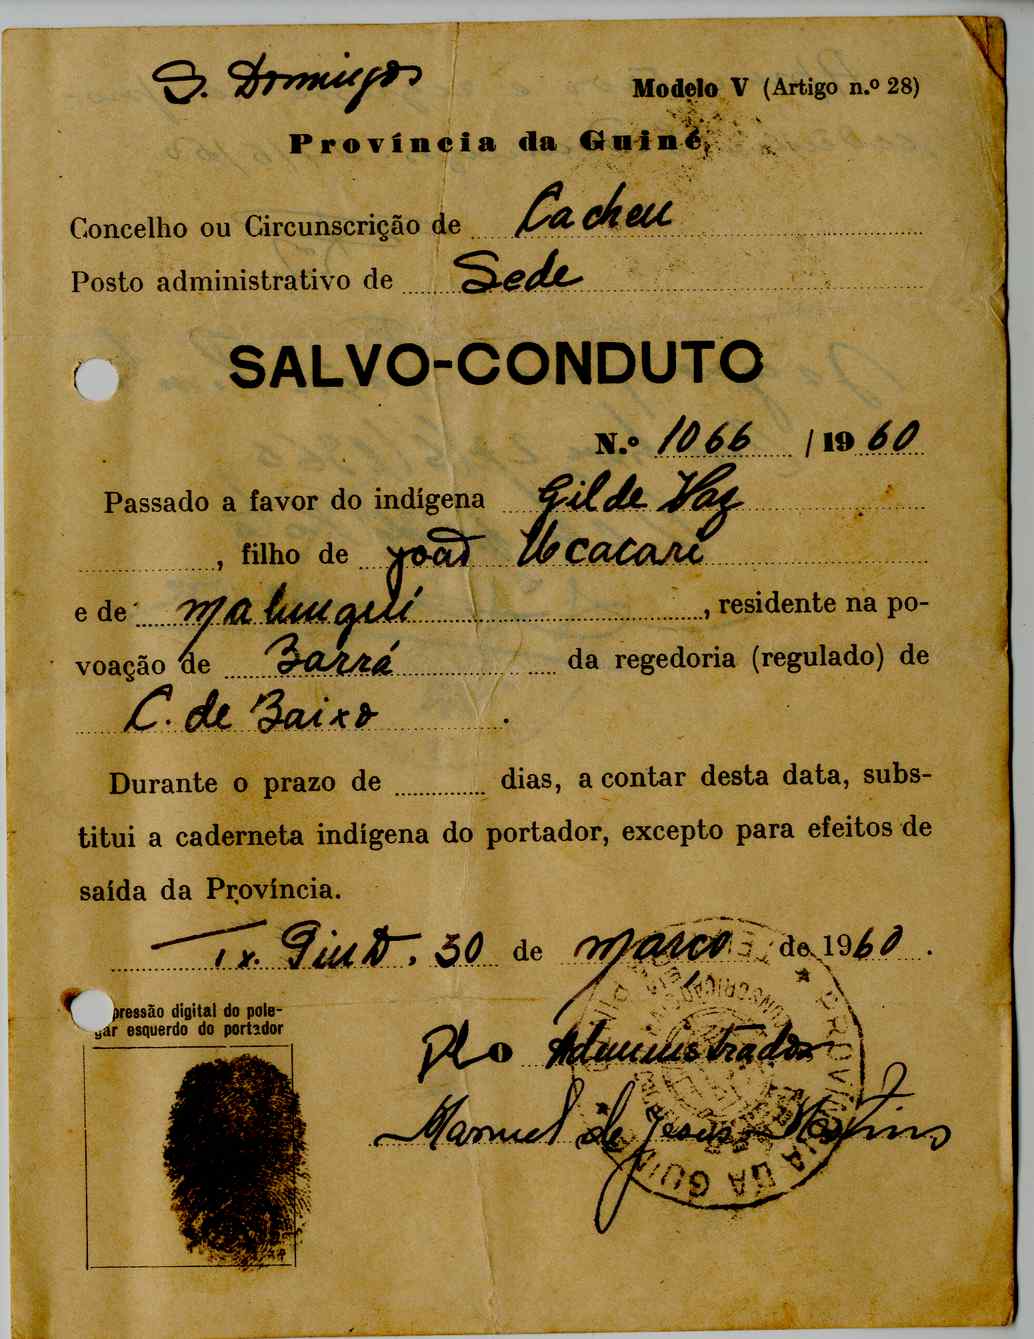 S. Domingos
Modelo V (Artigo n.º 28)
Província da Guiné
Concelho ou Circunscrição de Cacheu
Posto administrativo de Sede
SALVO-CONDUTO
N.º 1066 / 1960
Passado a favor do indígena Gil de Vaz
, filho de João Ucacari
e de Malunguí, residente na po-
voação de Barrá da regedoria (regulado) de
C. de Baixo.
Durante o prazo de dias, a contar desta data, subs-
titui a caderneta indígena do portador, excepto para efeitos de
saída da Província.
Tx. 30 de março de 1960.
pressão digital do pole-
gar esquerdo do portador
Plo Administrador
Manuel de Jesus Martins
PROVÍNCIA DA GUINÉ